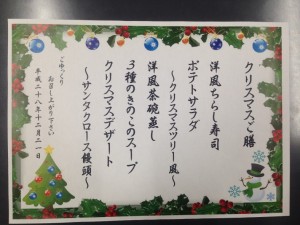 クリスマスご膳
洋風ちらし寿司
ポテトサラダ
～クリスマスツリー風～
洋風茶碗蒸し
3種のきのこのスープ
クリスマスデザート
～サンタクロース饅頭～
ごゆっくり
お召し上がり下さい
平成二十八年十二月二一日